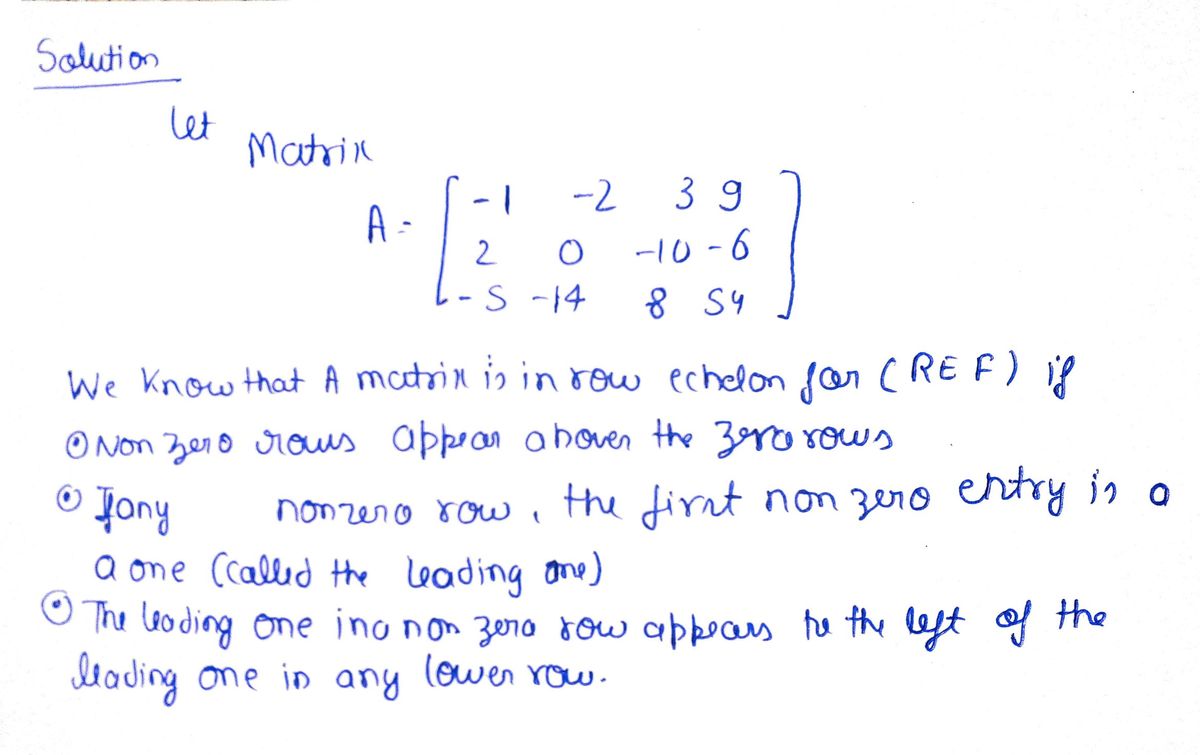 Solution
let Matrix
A = [ -1 -2 3 9
2 0 -10 -6
-5 -14 8 54 ]
We know that A matrix is in row echelon for (REF) if
⊙ Non zero rows appear aboven the zero rows
⊙ If any nonzero row, the first non zero entry is a
a one (called the leading one)
⊙ The leading one in a non zero row appears to the left of the
leading one in any lower row.